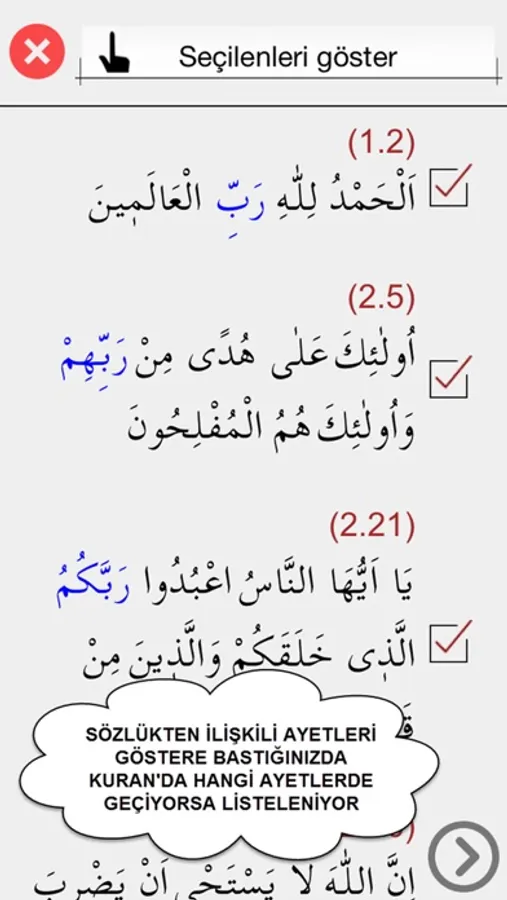 Seçilenleri göster
(1.2)
اَلْحَمْدُ لِلّٰهِ رَبِّ الْعَالَمٖينَ
(2.5)
اُولٰئِكَ عَلٰى هُدًى مِنْ رَبِّهِمْ
وَاُولٰئِكَ هُمُ الْمُفْلِحُونَ
(2.21)
يَا اَيُّهَا النَّاسُ اعْبُدُوا رَبَّكُمُ
الَّذٖى خَلَقَكُمْ وَالَّذٖينَ مِنْ
SÖZLÜKTEN İLİŞKİLİ AYETLERİ
GÖSTERE BASTIĞINIZDA
KURAN'DA HANGİ AYETLERDE
GEÇİYORSA LİSTELENİYOR
اِنَّ اللّٰهَ لَا يَسْتَحْيٖ اَنْ يَضْرِبَ